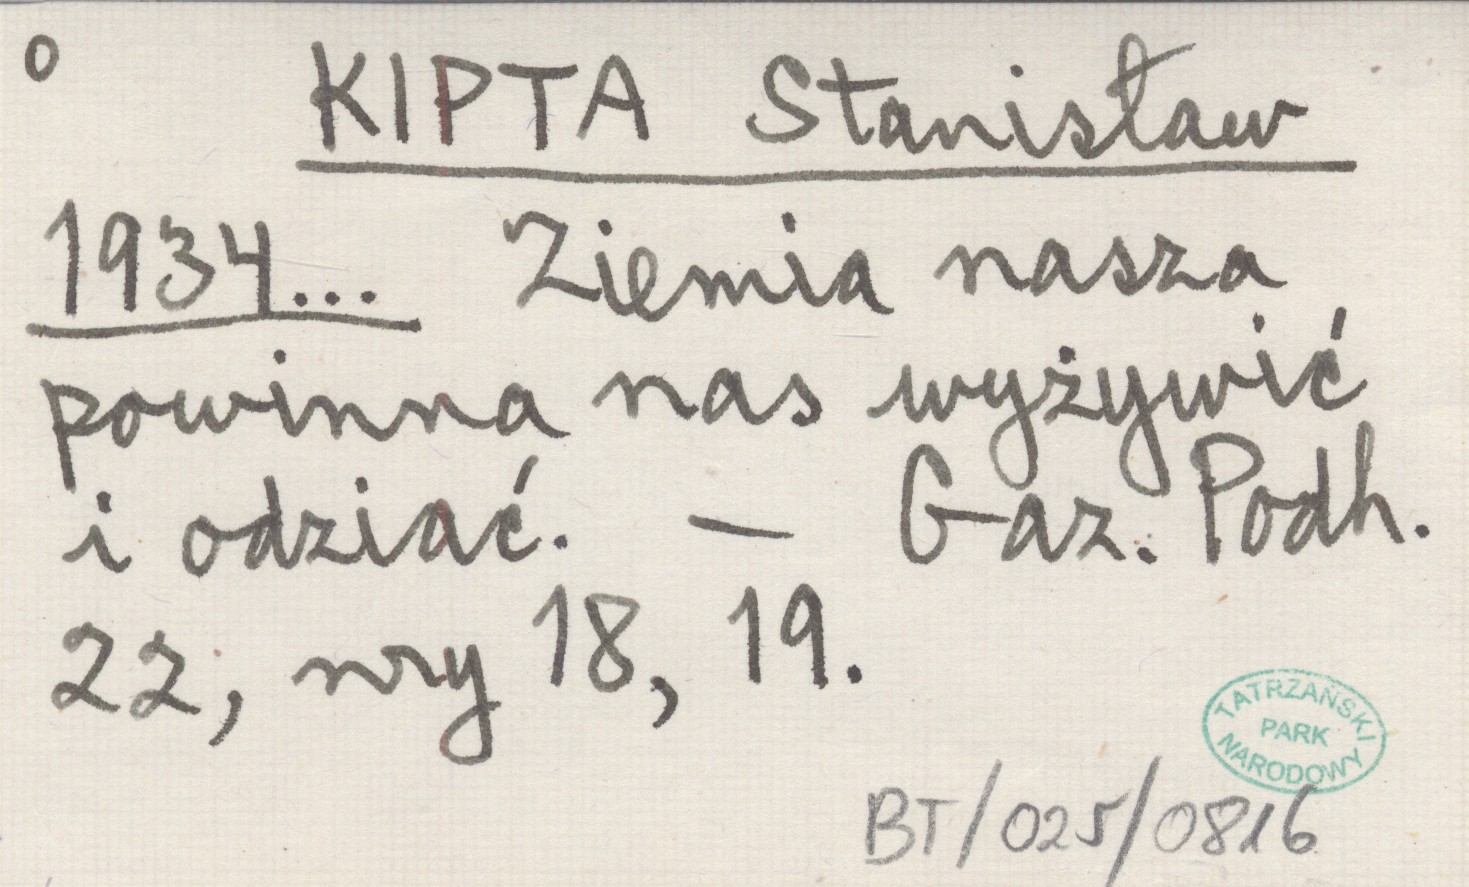 o KIPTA Stanisław
1934... Ziemia nasza
powinna nas wyżywić
i odziać. — Gaz. Podh.
22, nry 18, 19.
TATRZAŃSKI
PARK
NARODOWY
BT/025/0816